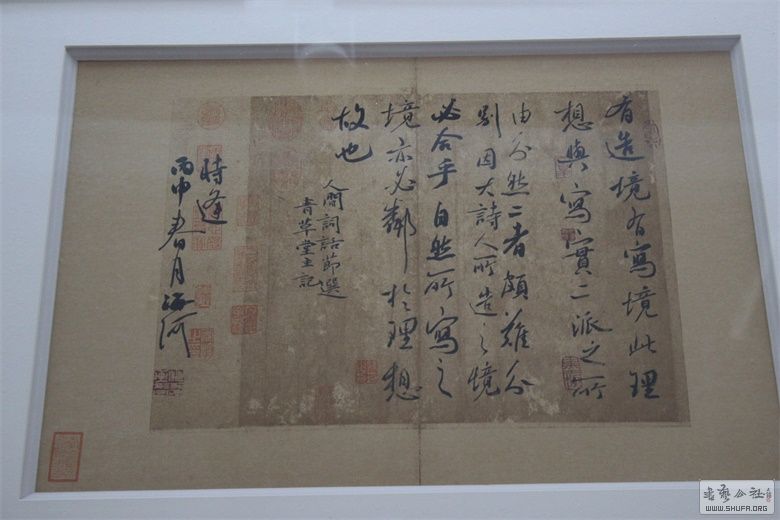 有造境有寫境此理
想與寫實二派之所
由分然二者頗難分
別因大詩人所造之境
必合乎自然所寫之
境亦必鄰於理想
故也
人間詞話節選
青草堂主記
時逢
丙申春月
書藝公社
WWW.SHUFA.ORG